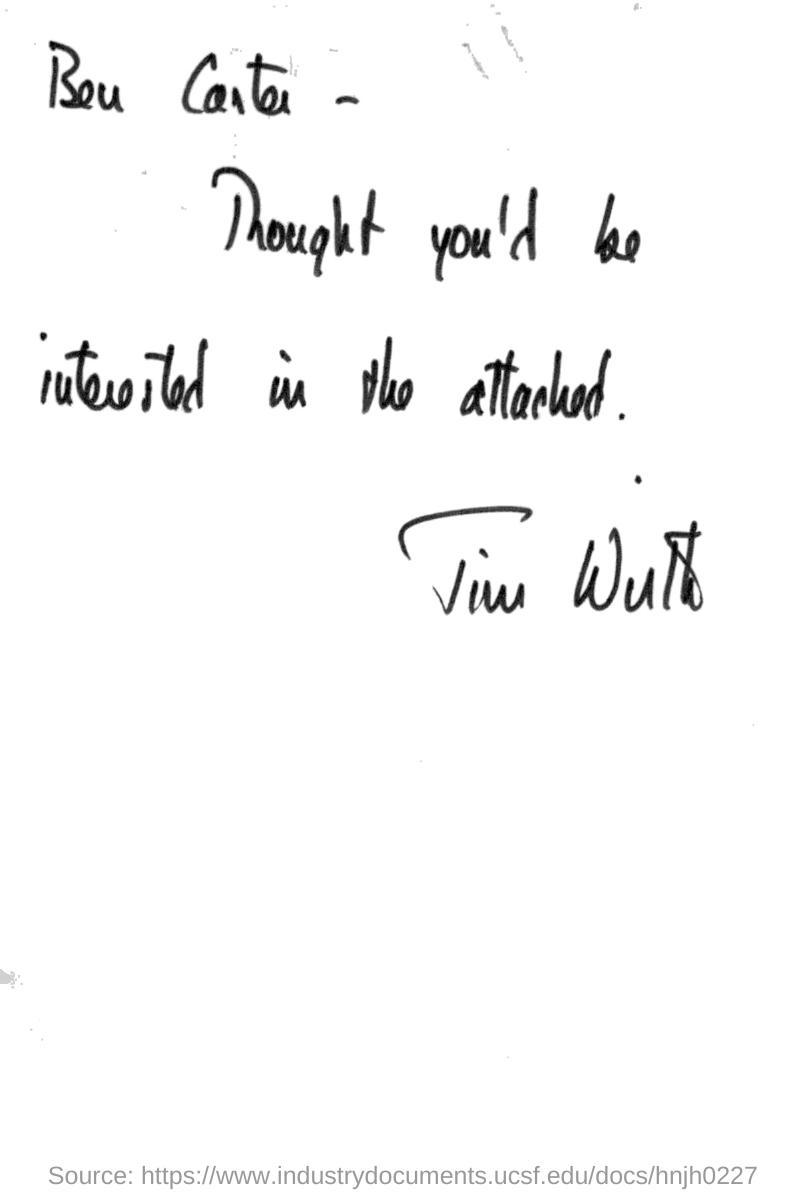 Ben Carter -
Thought you'd be
interested in the attached.
Jim
Source: https://www.industrydocuments.ucsf.edu/docs/hnjh0227